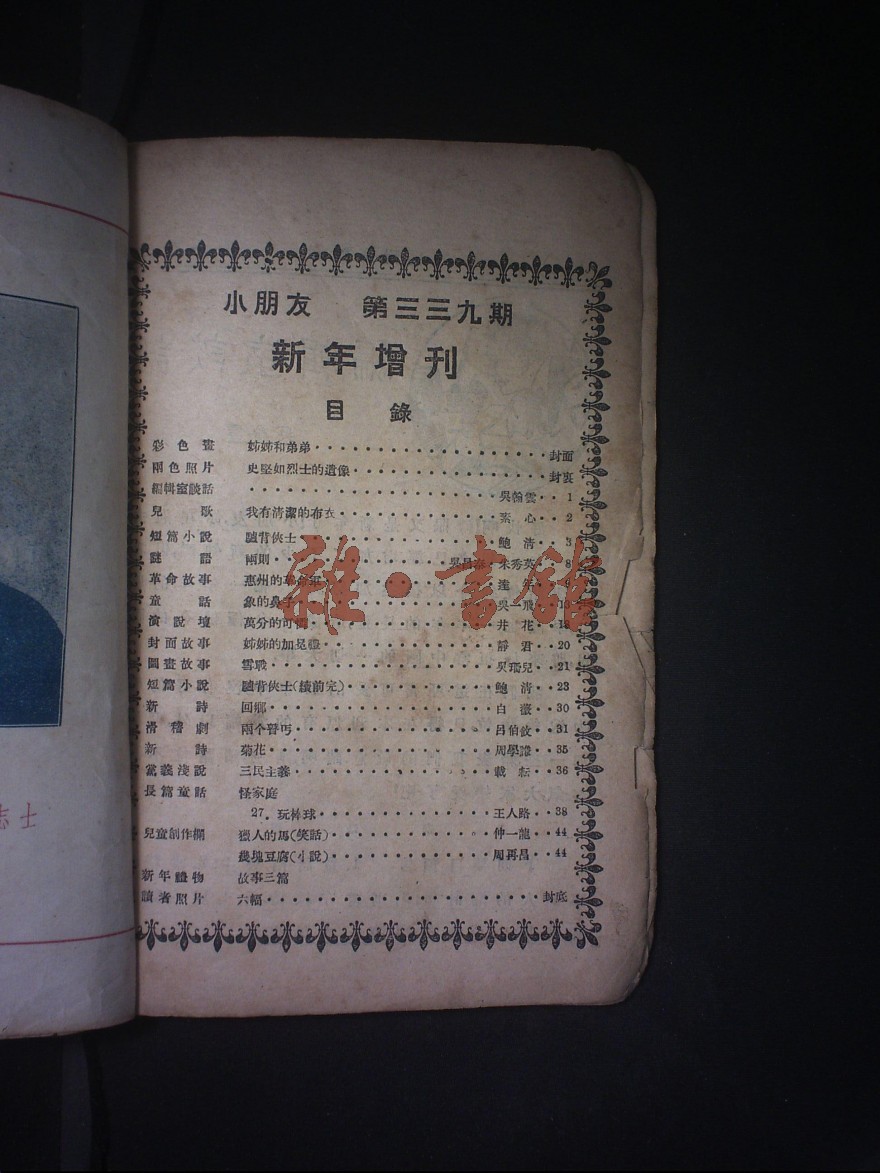 小朋友 第三三九期
新年增刊
目錄
彩色畫 姊姊和弟弟 封面
兩色照片 史堅如烈士的遺像 封裏
編輯室談話 吳翰雲 1
兒歌 我有清潔的布衣 素心 2
短篇小說 駝背俠士 鮑清 3
謎語 兩則 朱秀英 8
革命故事 惠州的革命軍 9
童話 象的鼻子 吳一飛 13
演說壇 萬分的可 井花
封面故事 姊姊的加冕禮 靜君 20
圖畫故事 雪戰 吳瑞兒 21
短篇小說 駝背俠士(續前完) 鮑清 23
新詩 回鄉 白薇 30
滑稽劇 兩个瞽丐 呂伯攸 31
新詩 菊花 周學謙 35
黨義淺說 三民主義 載耘 36
長篇童話 怪家庭
27. 玩棒球 王人路 38
兒童創作欄 獵人的馬(笑話) 仲一龍 44
幾塊豆腐(小說) 周再昌 44
新年禮物 故事三篇
讀者照片 六幅 封底
雜·書館
志士